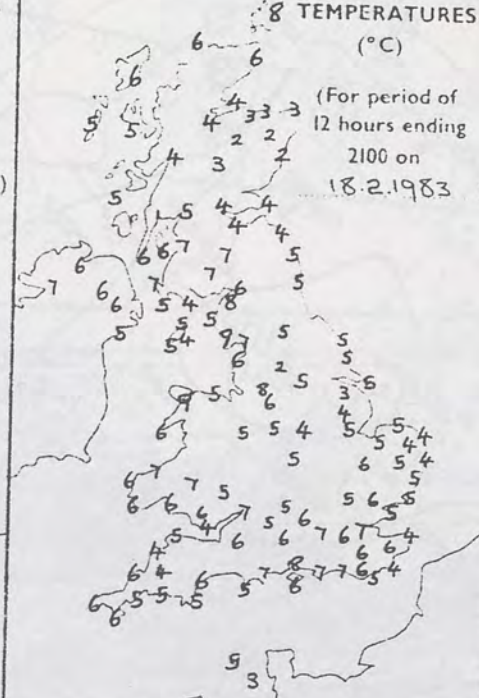 TEMPERATURES
(°C)
(For period of
12 hours ending
2100 on
18.2.1983
)
8
6 6
6
4 3 3 3
5 5 4 2 2
4 3 2
5 5 4 4
4 4
6 6 7 7 5
6 7 5
7 6 6 7 5 4 8 6
5 5 4 5 9 7 5 5
6 2 5
6 5 8 6 5 3 5
4
6 5 5 4 5 5 5 4
4
5 6 5 4
7 5
6 7 5
6 6 6 5 5 6 5 8
4 7 5 6 5
5 6 6 7 6 7 4
4 6 6
6 4 6 7 8 7 7 6 5 4
6 5 5 5 5 6
6
9
3